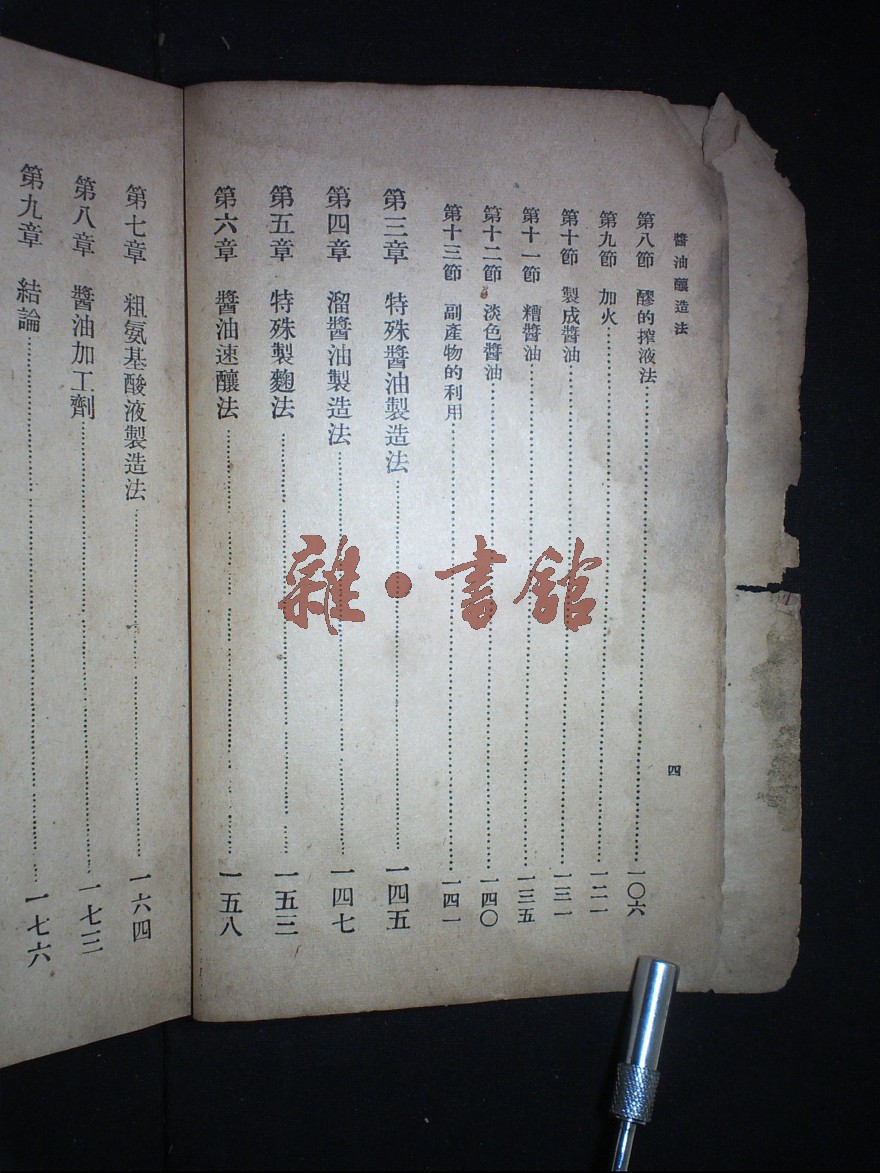 醬油釀造法
四
第八節　醪的搾液法……一〇六
第九節　加火……一二一
第十節　製成醬油……一三一
第十一節　糟醬油……一三五
第十二節　淡色醬油……一四〇
第十三節　副產物的利用……一四一
第三章　特殊醬油製造法……一四五
第四章　溜醬油製造法……一四七
第五章　特殊製麴法……一五三
第六章　醬油速釀法……一五八
第七章　粗氨基酸液製造法……一六四
第八章　醬油加工劑……一七三
第九章　結論……一七六
雜·書館